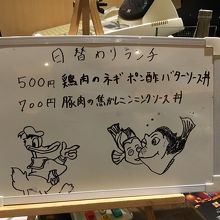 日替わりランチ
500円 鶏肉のネギポン酢バターソース丼
700円 豚肉の焦がしニンニクソース丼